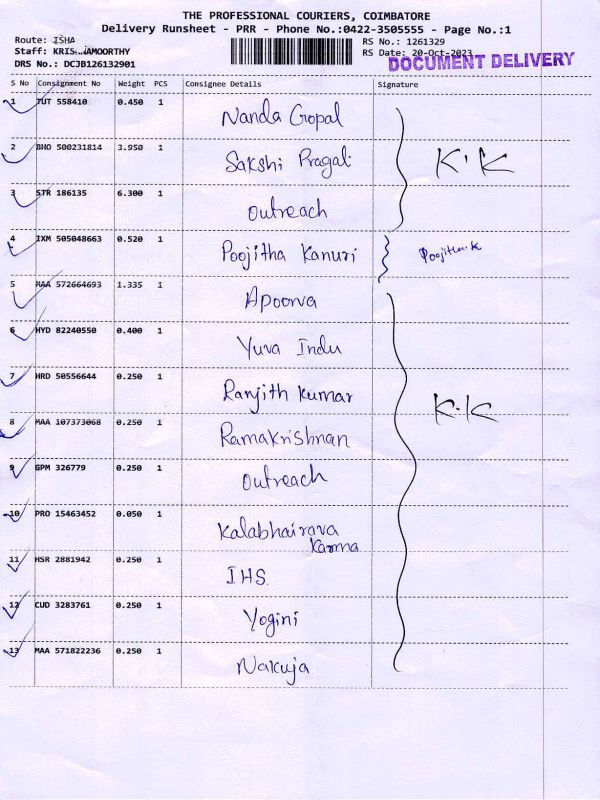 THE PROFESSIONAL COURIERS, COIMBATORE
Delivery Runsheet - PRR - Phone No.:0422-3505555 - Page No.:1
Route: ISHA
Staff: KRISHNAMOORTHY
DRS No.: DCJB126132901
RS No.: 1261329
RS Date: 20-Oct-2023
DOCUMENT DELIVERY
S No Consignment No Weight PCS Consignee Details Signature
1 TUT 558410 0.450 1 Nanda Gopal
2 BHO 500231814 3.950 1 Sakshi Pragali K.K
3 STR 186135 6.300 1 Outreach
4 IXM 505048663 0.520 1 Poojitha Kanuri Poojitha.K
5 MAA 572664693 1.335 1 Apoorva
6 HYD 82240550 0.400 1 Yuva Indu
7 HRD 50556644 0.250 1 Ranjith Kumar K.K
8 MAA 107373068 0.250 1 Ramakrishnan
9 GPM 326779 0.250 1 Outreach
10 PRO 15463452 0.050 1 Kalabhairava
Karma
11 HSR 2881942 0.250 1 IHS.
12 CUD 3283761 0.250 1 Yogini
13 MAA 571822236 0.250 1 Nakuja